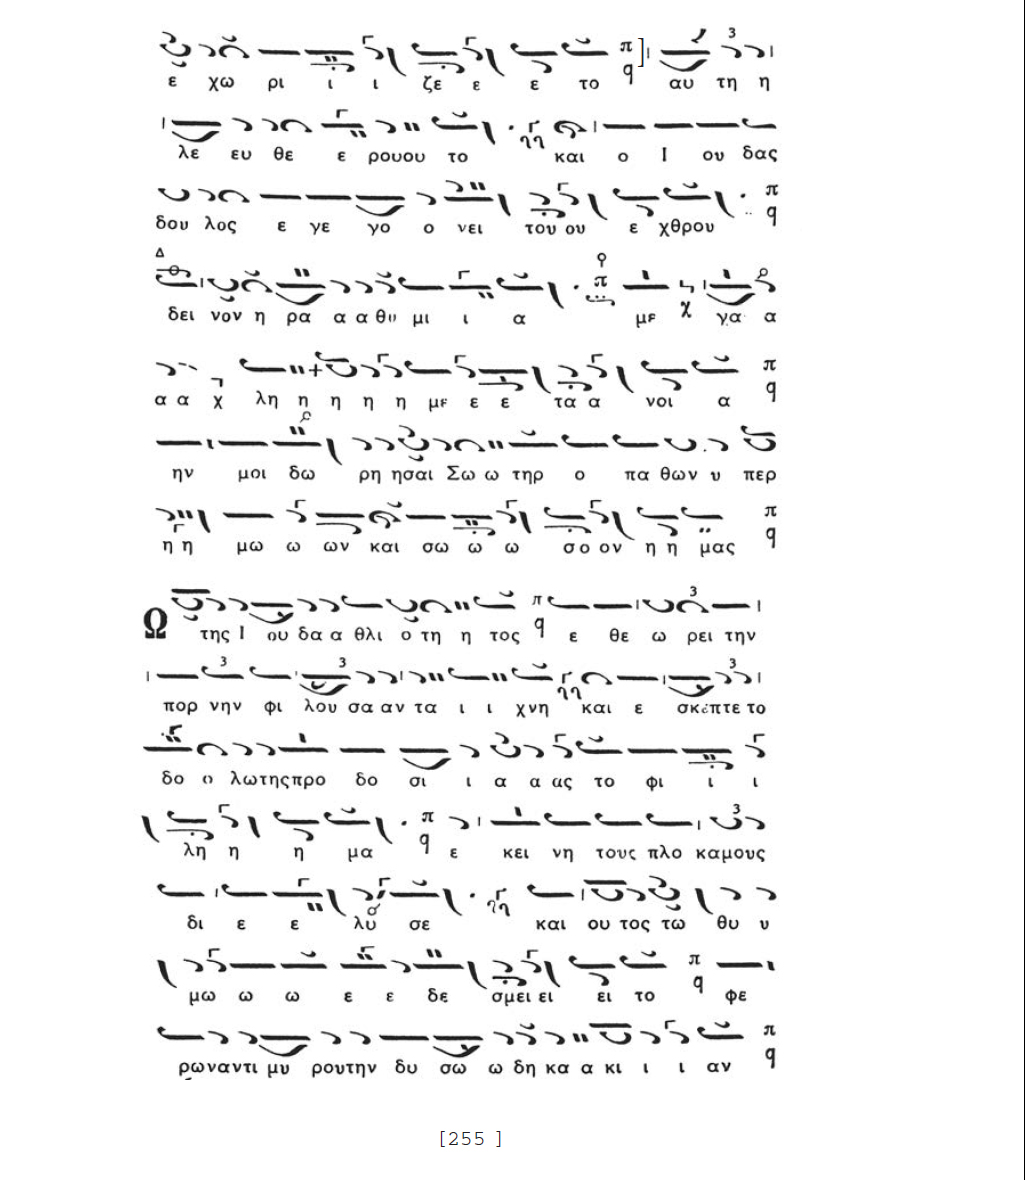 ε χω ρι ι ι ζε ε ε το αυ τη η
λε ευ θε ε ρουου το και ο Ι ου δας
δου λος ε γε γο ο νει του ου ε χθρου
δει νον η ρα α α θυ μι ι α με χ γα α
α α χ λη η η η η με ε ε τα α νοι α
ην μοι δω ρη ησαι Σω ω τηρ ο πα θων υ περ
η η μω ω ων και σω ω ω σο ον η η μας
Ω της Ι ου δα α θλι ο τη η τος ε θε ω ρει την
πορ νην φι λου σα αν τα ι ι χνη και ε σκεπτε το
δο ο λωτηςπρο δο σι ι α α ας το φι ι ι
λη η η μα ε κει νη τους πλο καμους
δι ε ε λυ σε και ου τος τω θυ υ
μω ω ω ε ε δε σμει ει ει το φε
ρωναντι μυ ρουτην δυ σω ω δη κα α κι ι ι αν
[255 ]